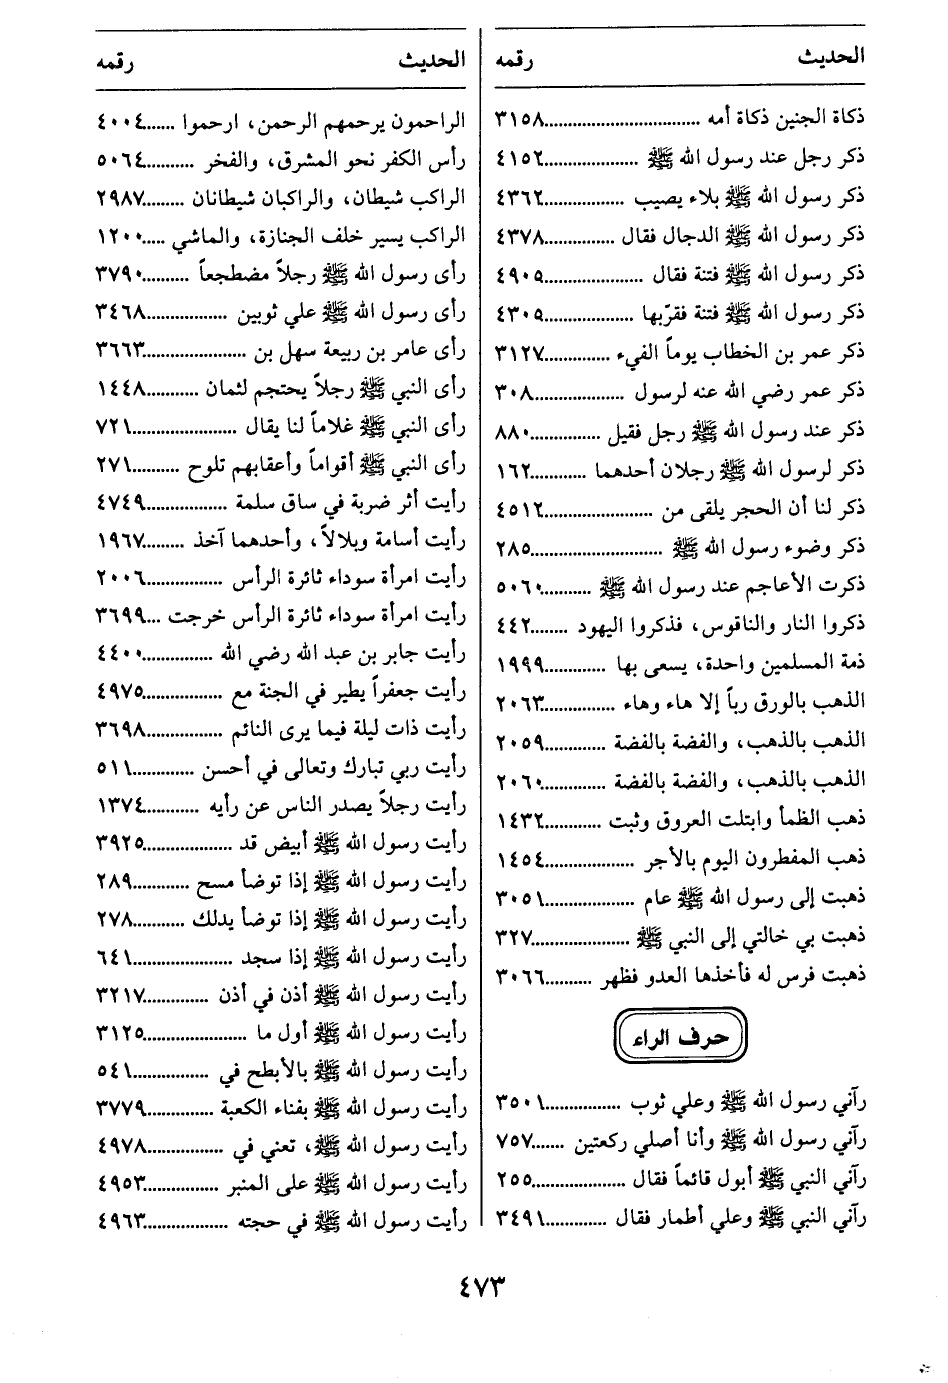 الحديث رقمه
ذكاة الجنين ذكاة أمه ................................ ٣١٥٨
ذكر رجل عند رسول الله ﷺ .................... ٤١٥٢
ذكر رسول الله ﷺ بلاء يصيب ................. ٤٣٦٢
ذكر رسول الله ﷺ الدجال فقال ............... ٤٣٧٨
ذكر رسول الله ﷺ فتنة فقال ..................... ٤٩٠٥
ذكر رسول الله ﷺ فتنة فقرّبها ................... ٤٣٠٥
ذكر عمر بن الخطاب يوماً الفيء .............. ٣١٢٧
ذكر عمر رضي الله عنه لرسول ................... ٣٠٨
ذكر عند رسول الله ﷺ رجل فقيل ............... ٨٨٠
ذكر لرسول الله ﷺ رجلان أحدهما ............. ١٦٢
ذكر لنا أن الحجر يلقى من ....................... ٤٥١٢
ذكر وضوء رسول الله ﷺ ........................... ٢٨٥
ذكرت الأعاجم عند رسول الله ﷺ ........... ٥٠٦٠
ذكروا النار والناقوس، فذكروا اليهود ........ ٤٤٢
ذمة المسلمين واحدة، يسعى بها ............. ١٩٩٩
الذهب بالورق رباً إلا هاء وهاء ................ ٢٠٦٣
الذهب بالذهب، والفضة بالفضة .............. ٢٠٥٩
الذهب بالذهب، والفضة بالفضة .............. ٢٠٦٠
ذهب الظمأ وابتلت العروق وثبت ............ ١٤٣٢
ذهب المفطرون اليوم بالأجر ................... ١٤٥٤
ذهبت إلى رسول الله ﷺ عام ................... ٣٠٥١
ذهبت بي خالتي إلى النبي ﷺ .................... ٣٢٧
ذهبت فرس له فأخذها العدو فظهر .......... ٣٠٦٦
حرف الراء
رآني رسول الله ﷺ وعلي ثوب ................ ٣٥٠١
رآني رسول الله ﷺ وأنا أصلي ركعتين ....... ٧٥٧
رآني النبي ﷺ أبول قائماً فقال ................... ٢٥٥
رآني النبي ﷺ وعلي أطمار فقال ............. ٣٤٩١
الحديث رقمه
الراحمون يرحمهم الرحمن، ارحموا ....... ٤٠٠٤
رأس الكفر نحو المشرق، والفخر ........... ٥٠٦٤
الراكب شيطان، والراكبان شيطانان ......... ٢٩٨٧
الراكب يسير خلف الجنازة، والماشي ..... ١٢٠٠
رأى رسول الله ﷺ رجلاً مضطجعاً .......... ٣٧٩٠
رأى رسول الله ﷺ علي ثوبين ................. ٣٤٦٨
رأى عامر بن ربيعة سهل بن ..................... ٣٦٦٣
رأى النبي ﷺ رجلاً يحتجم لثمان ........... ١٤٤٨
رأى النبي ﷺ غلاماً لنا يقال ...................... ٧٢١
رأى النبي ﷺ أقواماً وأعقابهم تلوح ........... ٢٧١
رأيت أثر ضربة في ساق سلمة ................. ٤٧٤٩
رأيت أسامة وبلالاً، وأحدهما آخذ ......... ١٩٦٧
رأيت امرأة سوداء ثائرة الرأس ................ ٢٠٠٦
رأيت امرأة سوداء ثائرة الرأس خرجت ... ٣٦٩٩
رأيت جابر بن عبد الله رضي الله .............. ٤٤٠٠
رأيت جعفراً يطير في الجنة مع ................ ٤٩٧٥
رأيت ذات ليلة فيما يرى النائم ................ ٣٦٩٨
رأيت ربي تبارك وتعالى في أحسن ............. ٥١١
رأيت رجلاً يصدر الناس عن رأيه ........... ١٣٧٤
رأيت رسول الله ﷺ أبيض قد .................. ٣٩٢٥
رأيت رسول الله ﷺ إذا توضأ مسح ............ ٢٨٩
رأيت رسول الله ﷺ إذا توضأ يدلك ........... ٢٧٨
رأيت رسول الله ﷺ إذا سجد ..................... ٦٤١
رأيت رسول الله ﷺ أذن في أذن .............. ٣٢١٧
رأيت رسول الله ﷺ أول ما ...................... ٣١٢٥
رأيت رسول الله ﷺ بالأبطح في ................. ٥٤١
رأيت رسول الله ﷺ بفناء الكعبة .............. ٣٧٧٩
رأيت رسول الله ﷺ، تعني في ................. ٤٩٧٨
رأيت رسول الله ﷺ على المنبر ................ ٤٩٥٣
رأيت رسول الله ﷺ في حجته .................. ٤٩٦٣
٤٧٣